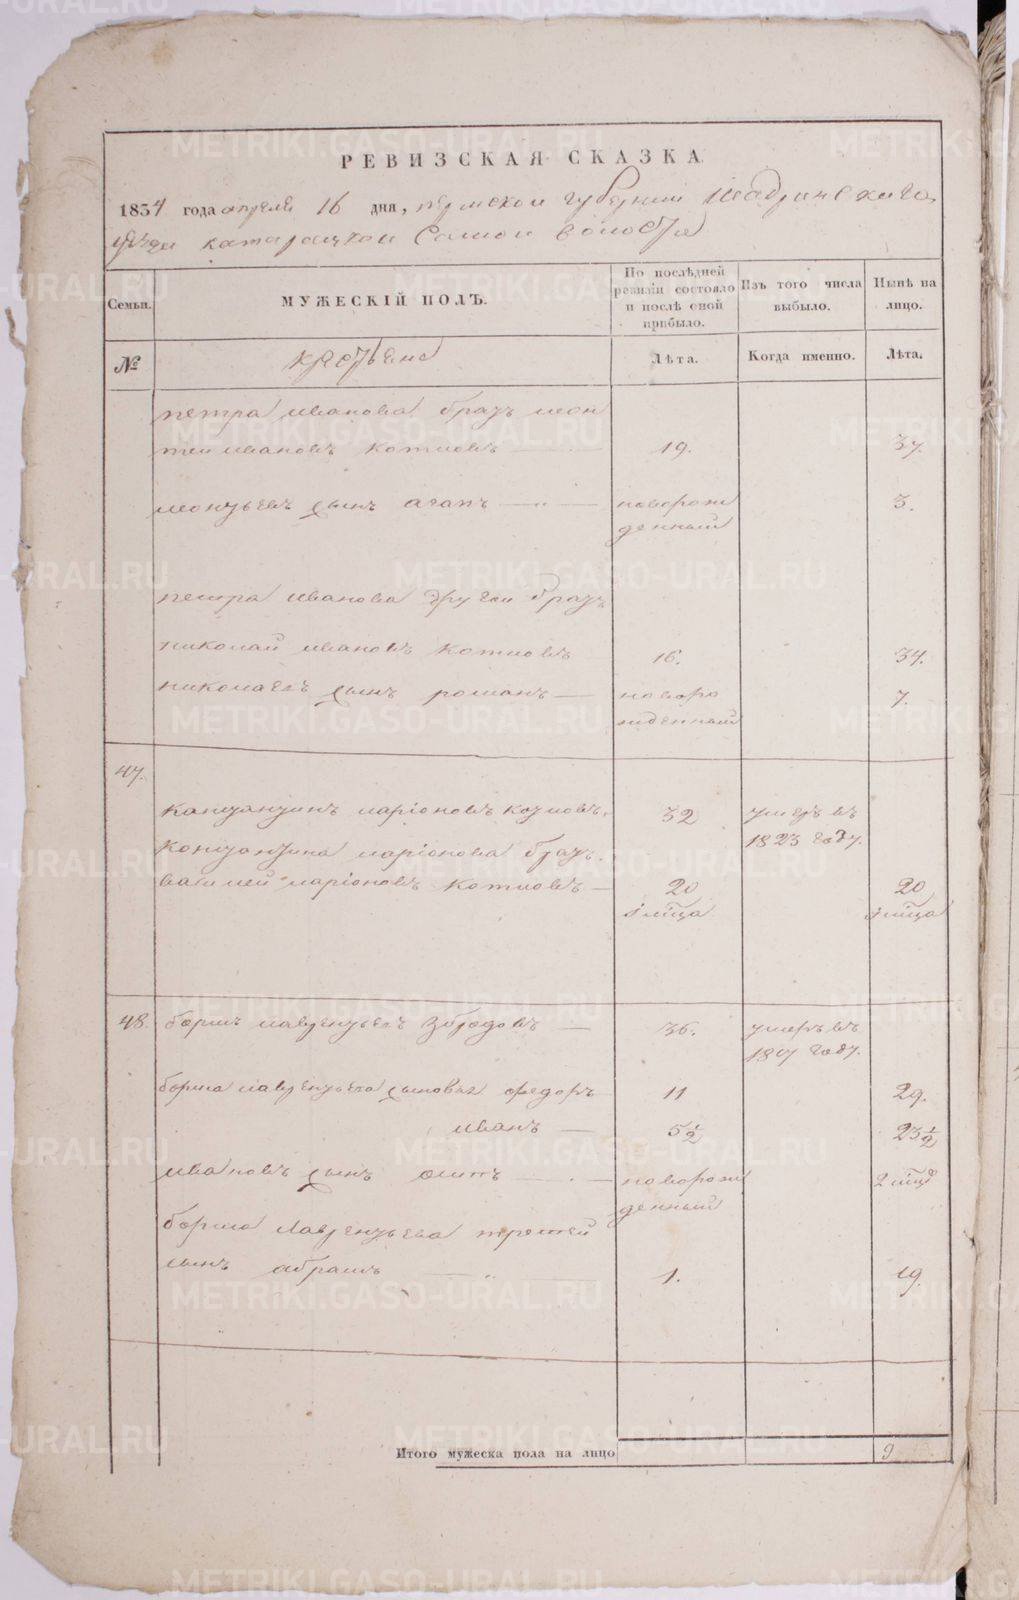 РЕВИЗСКАЯ СКАЗКА
1834 года апреля 16 дня, пермской губернии Шадринскаго
уѣзда катарацкой самой волости
Семьи.
МУЖЕСКІЙ ПОЛЪ.
По послѣдней ревизіи состояло и послѣ оной прибыло.
Изъ того числа выбыло.
Нынѣ на лицо.
№
крестьяне
Лѣта.
Когда именно.
Лѣта.
петра иванова братъ леон
тей ивановъ котловъ 19. 37.
леонтьевъ сынъ агапъ новорож 3.
денный
петра иванова другой братъ
николай ивановъ котловъ 16. 34.
николаевъ сынъ романъ новоро 7.
жденный
47.
канстантинъ ларіоновъ котловъ. 32 умеръ въ
1823 году.
констянтина ларіонова братъ
василей ларіоновъ котловъ 20 20
48. борисъ лаврентьевъ збродовъ 36. умеръ въ
году.
бориса лаврентьева сыновья федоръ 11 29.
иванъ 5½ 23½
ивановъ сынъ новорож
денный
бориса лаврентьева третей
сынъ абрамъ 1. 19.
Итого мужеска пола на лицо 9
METRIKI.GASO-URAL.RU